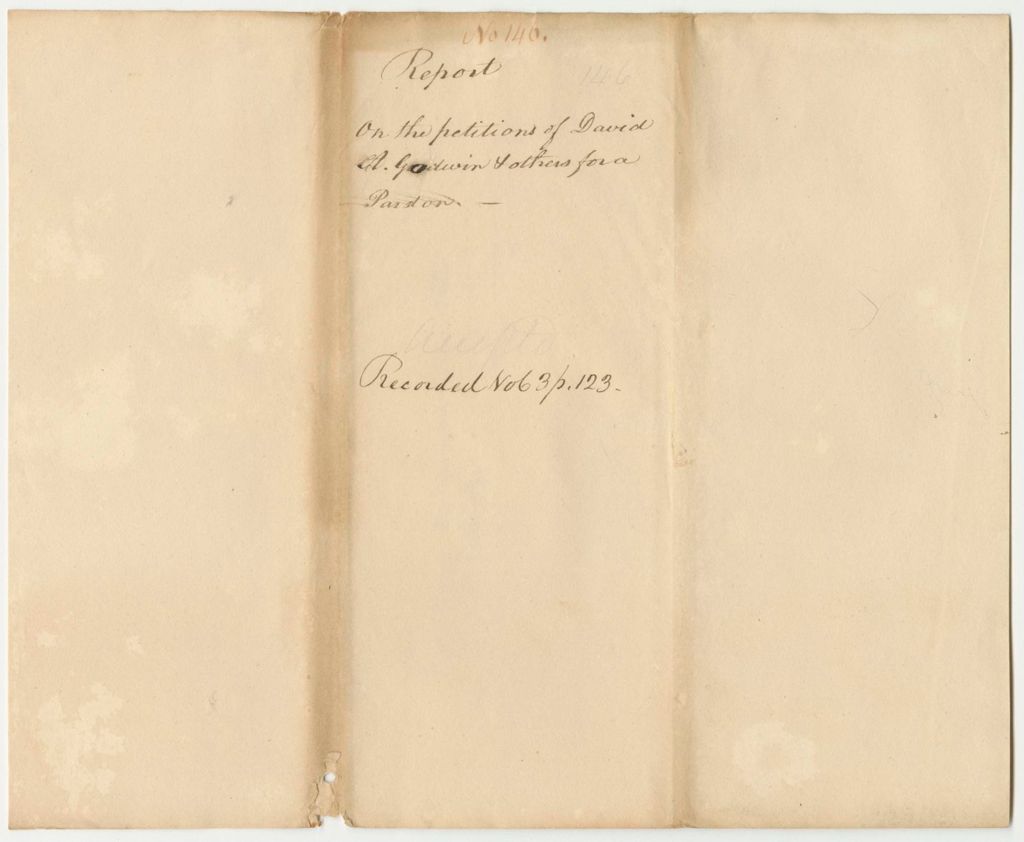 No 146.
Report
146
On the petitions of David
A. Godwin & others for a
Pardon. —
Recorded Vol 3 p. 123.